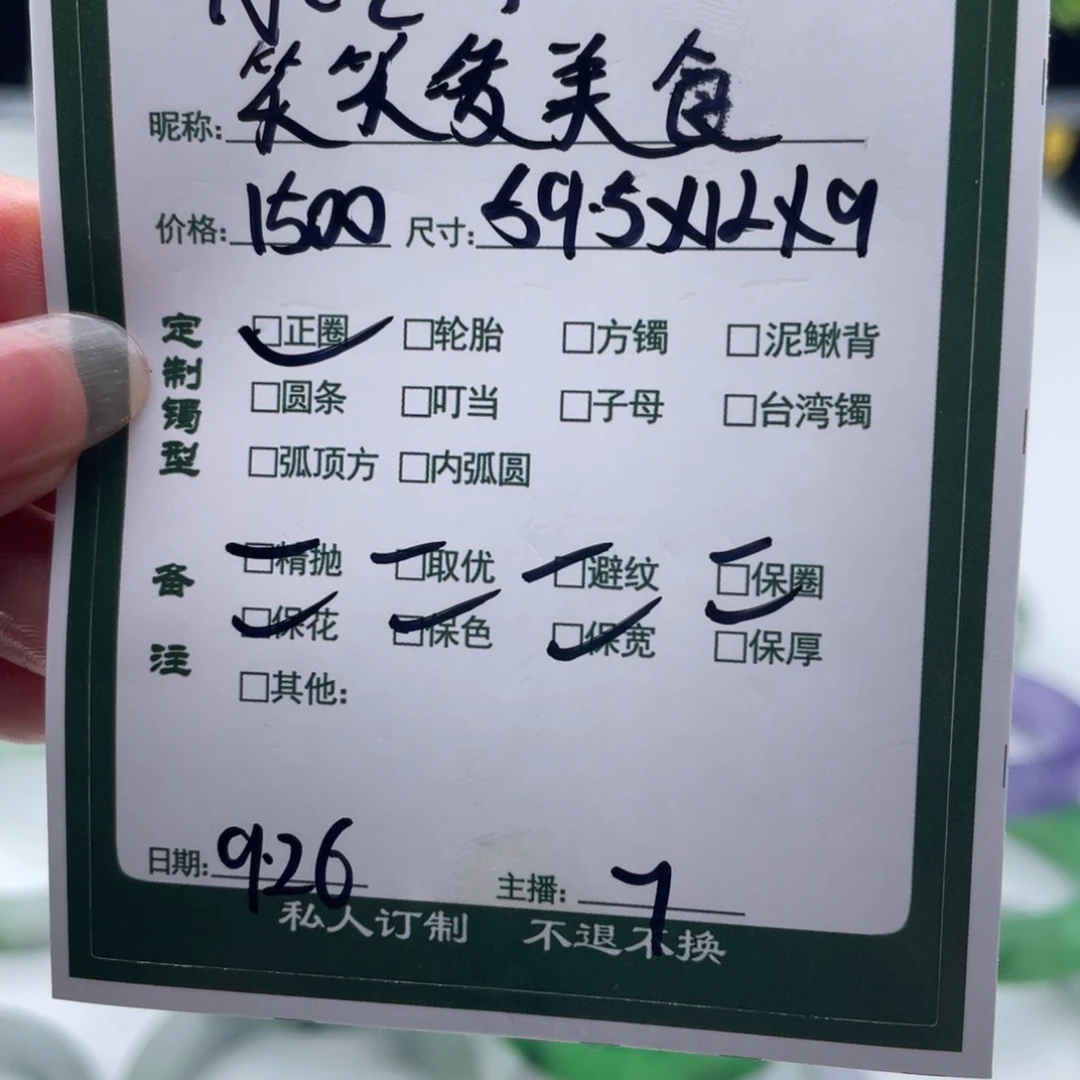 昵称: 笑笑爱美食
价格: 1500 尺寸: 59.5X12X9
定制镯型
□正圈 □轮胎 □方镯 □泥鳅背
□圆条 □叮当 □子母 □台湾镯
□弧顶方 □内弧圆
备注
□精抛 □取优 □避纹 □保圈
□保花 □保色 □保宽 □保厚
□其他:
日期: 9.26 主播: 7
私人订制 不退不换